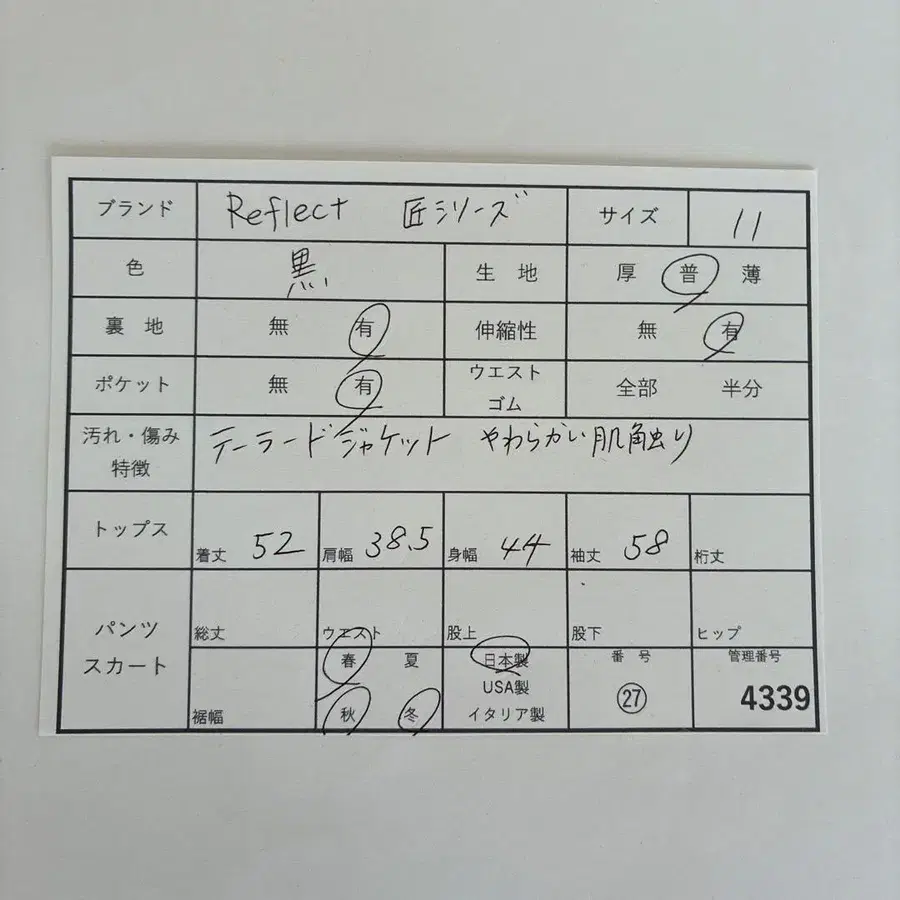 ブランド Reflect 匠シリーズ サイズ 11
色 黒 生 地 厚 普 薄
裏 地 無 有 伸縮性 無 有
ポケット 無 有 ウエスト ゴム 全部 半分
汚れ・傷み 特徴 テーラードジャケット やわらかい肌触り
トップス 着丈 52 肩幅 38.5 身幅 44 袖丈 58 裄丈
パンツ スカート 総丈 ウエスト 股上 股下 ヒップ
裾幅 春 夏 秋 冬 日本製 USA製 イタリア製 番 号 ㉗ 管理番号 4339